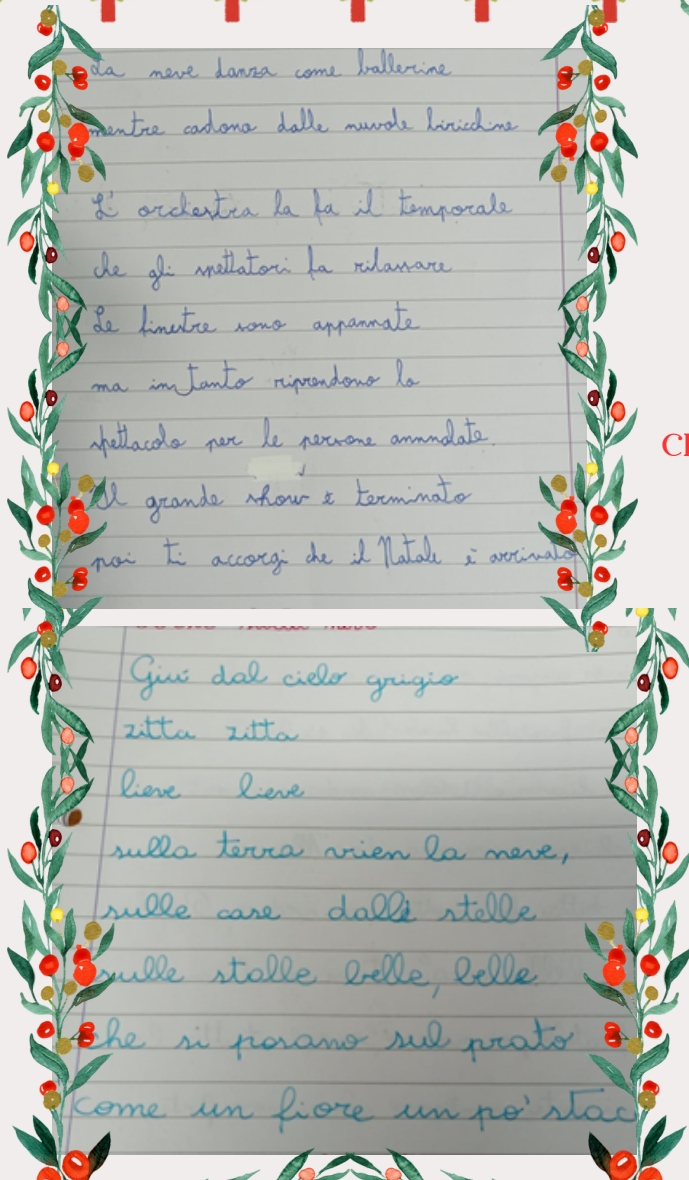 La neve danza come ballerine
mentre cadono dalle nuvole biricchine
L' orchestra la fa il temporale
che gli spettatori fa rilassare
Le finestre sono appannate
ma in tanto riprendono lo
spettacolo per le persone ammalate.
Il grande show è terminato
poi ti accorgi che il Natale è arrivato
Giù dal cielo grigio
zitta zitta
lieve lieve
sulla terra vien la neve,
sulle case dalle stelle
sulle stalle belle, belle
che si posano sul prato
come un fiore un po' stac